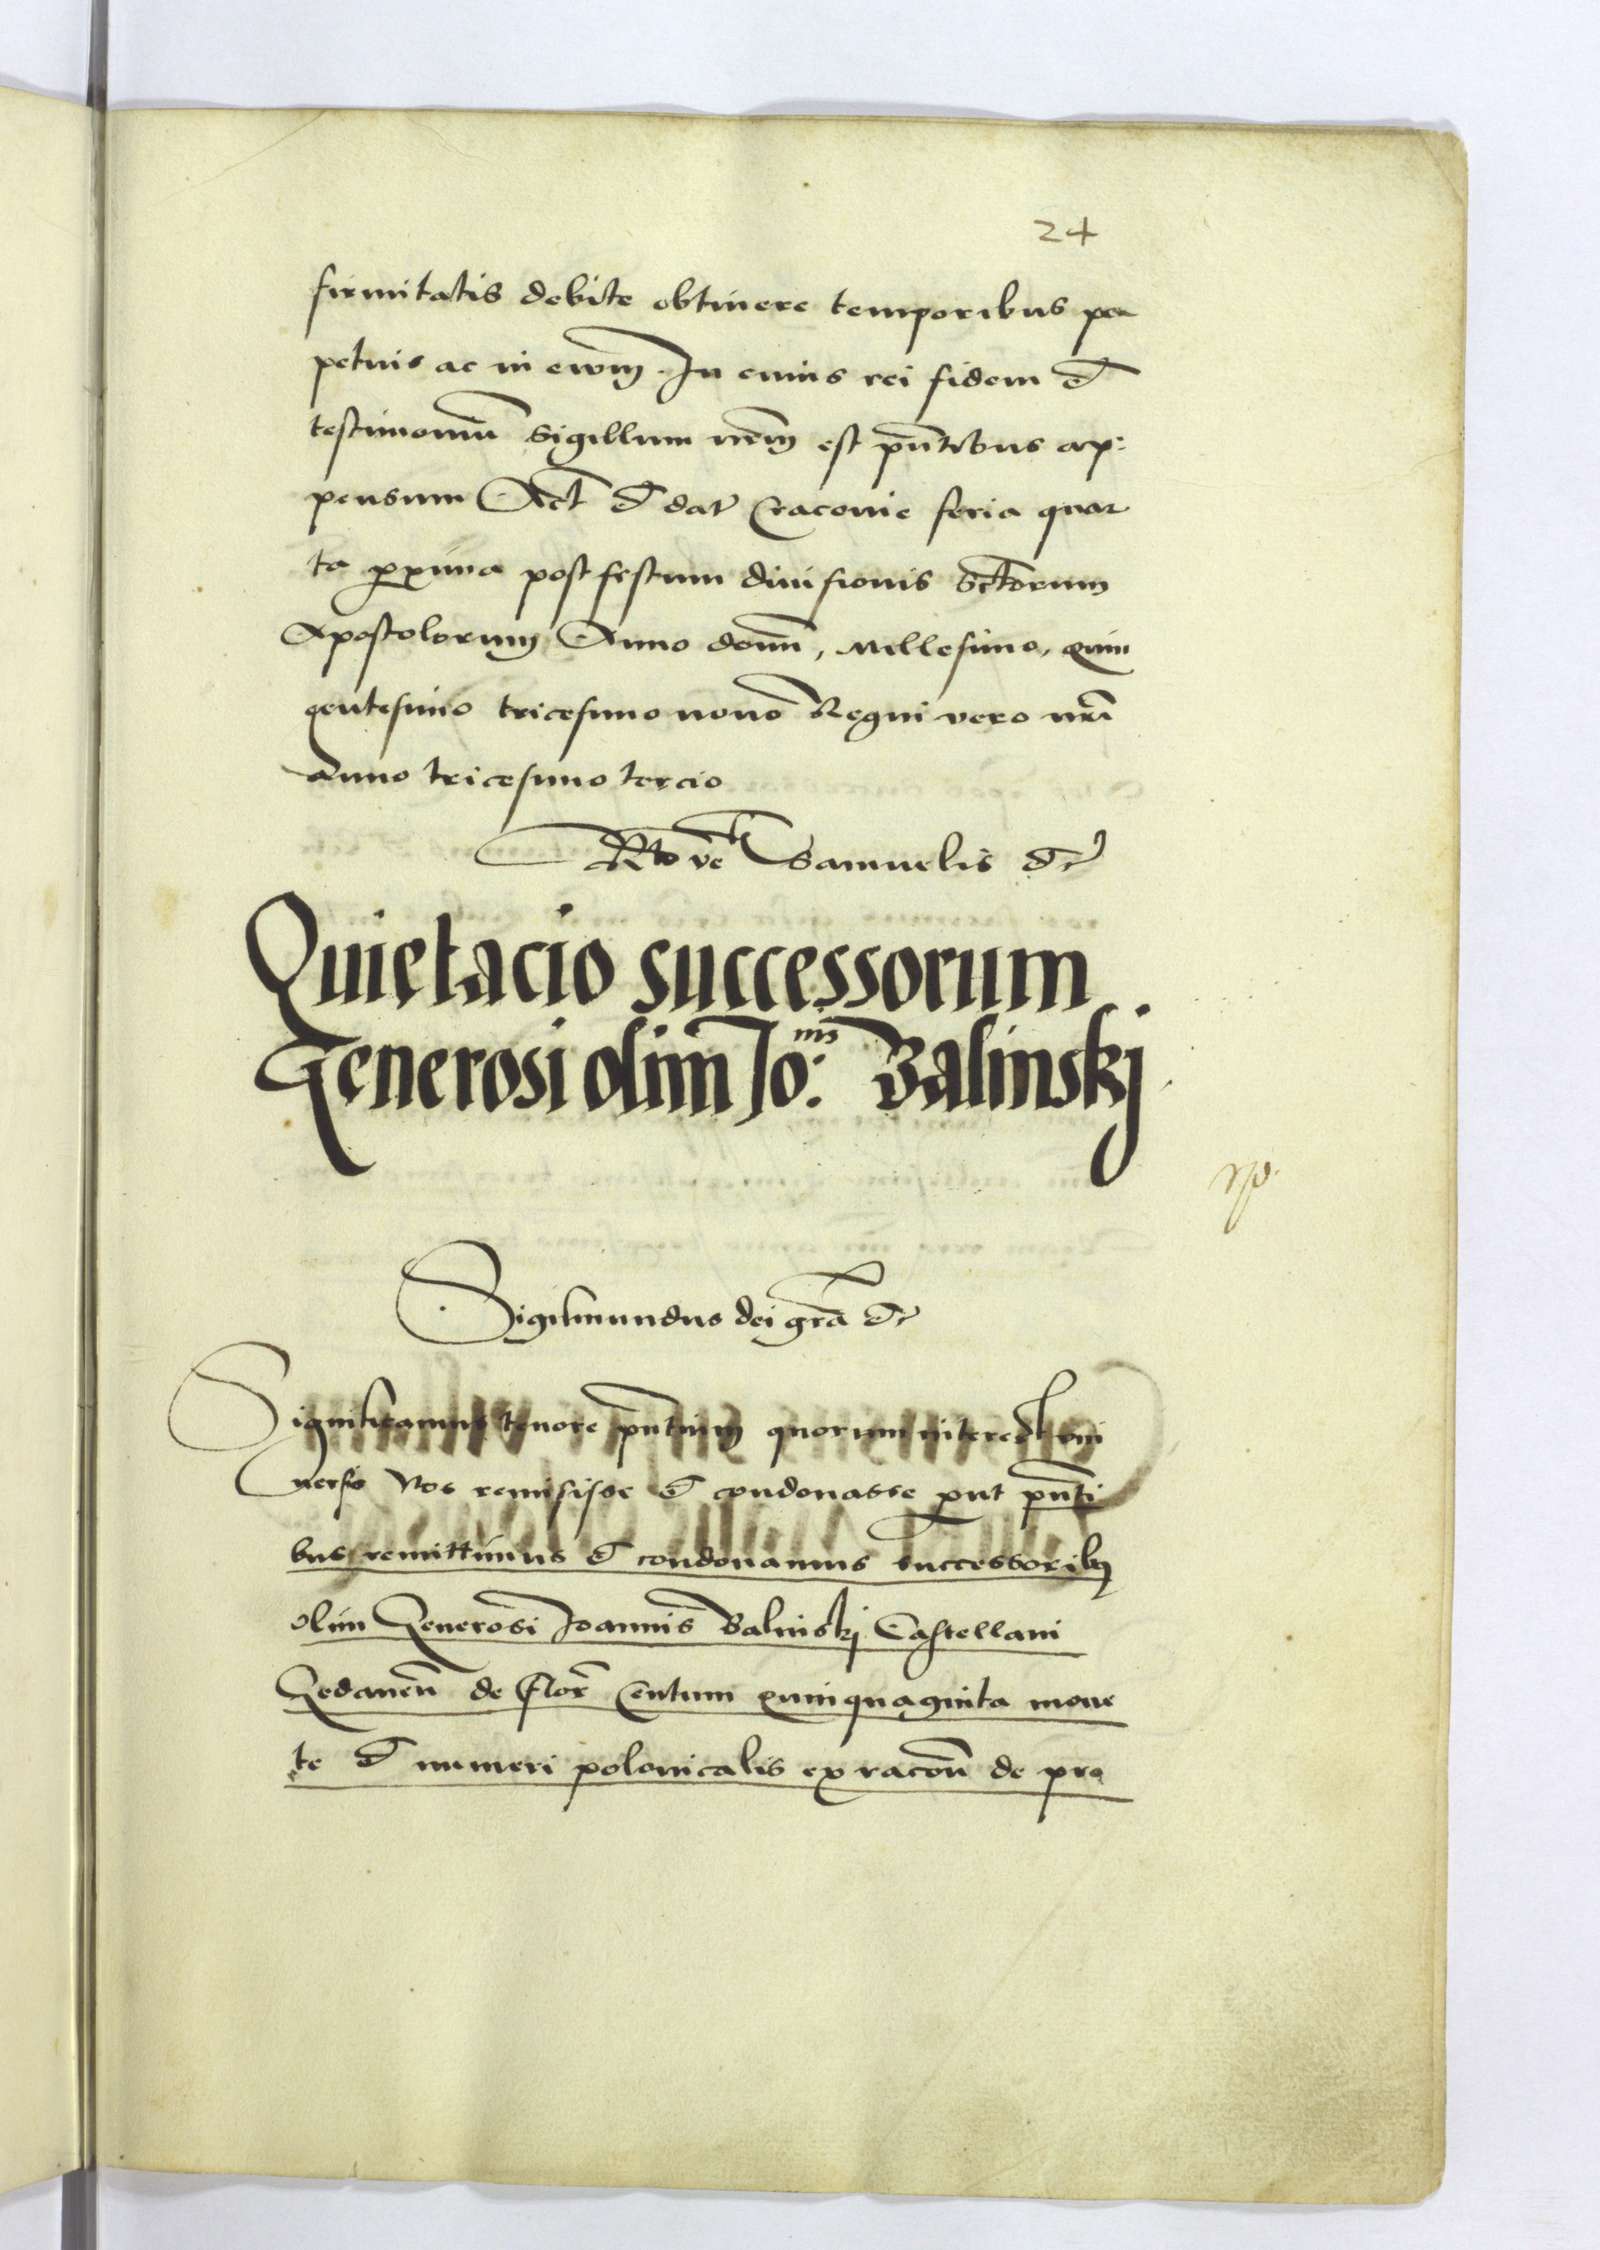 24
firmitatis debite obtinere temporibus per
petuis ac in ewm. In cuius rei fidem et
testimoniũ sigillum nr̃m est p̃ntibus ap:
pensum Act̃ et dat̃ Cracovie feria quar
ta proxima post festum divisionis Sctorum
Apostolorum Anno domĩ, Millesimo, quin
gentesimo tricesimo nono Regni vero nr̃i
anno tricesimo tercio
Rto ve Samuelis etc
Quietacio successorum
Generosi olim Jo:nis Balinskj
Sigismundus dei gr̃a etc
Significamus tenore p̃ntium quorum interest uni
versis Nos remisisse et condonasse prout p̃nti
bus remittimus et condonamus successoribus
olim Generosi Joannis Balinskj Castellani
Gedaneñ de flor̃ Centum quinquaginta mone
te et numeri polonicalis ex racoñ de pro